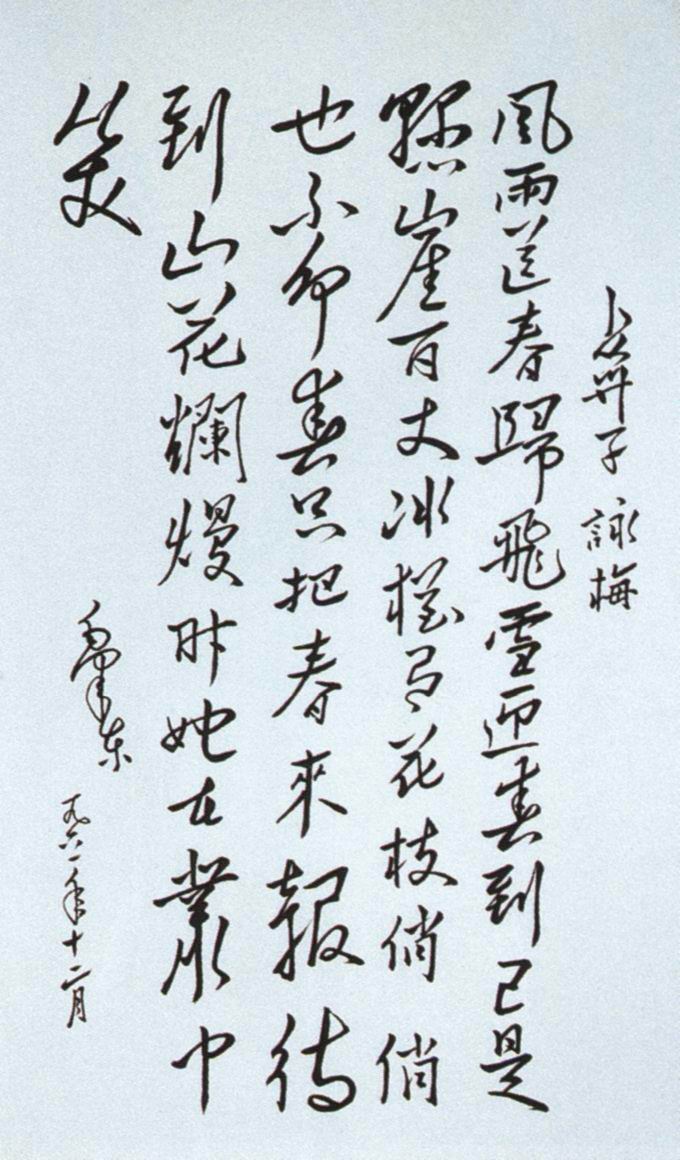 卜算子 詠梅
風雨送春歸飛雪迎春到已是
懸崖百丈冰猶有花枝俏俏
也不爭春只把春來報待
到山花爛熳时她在叢中
笑
毛澤东
一九六一年十二月